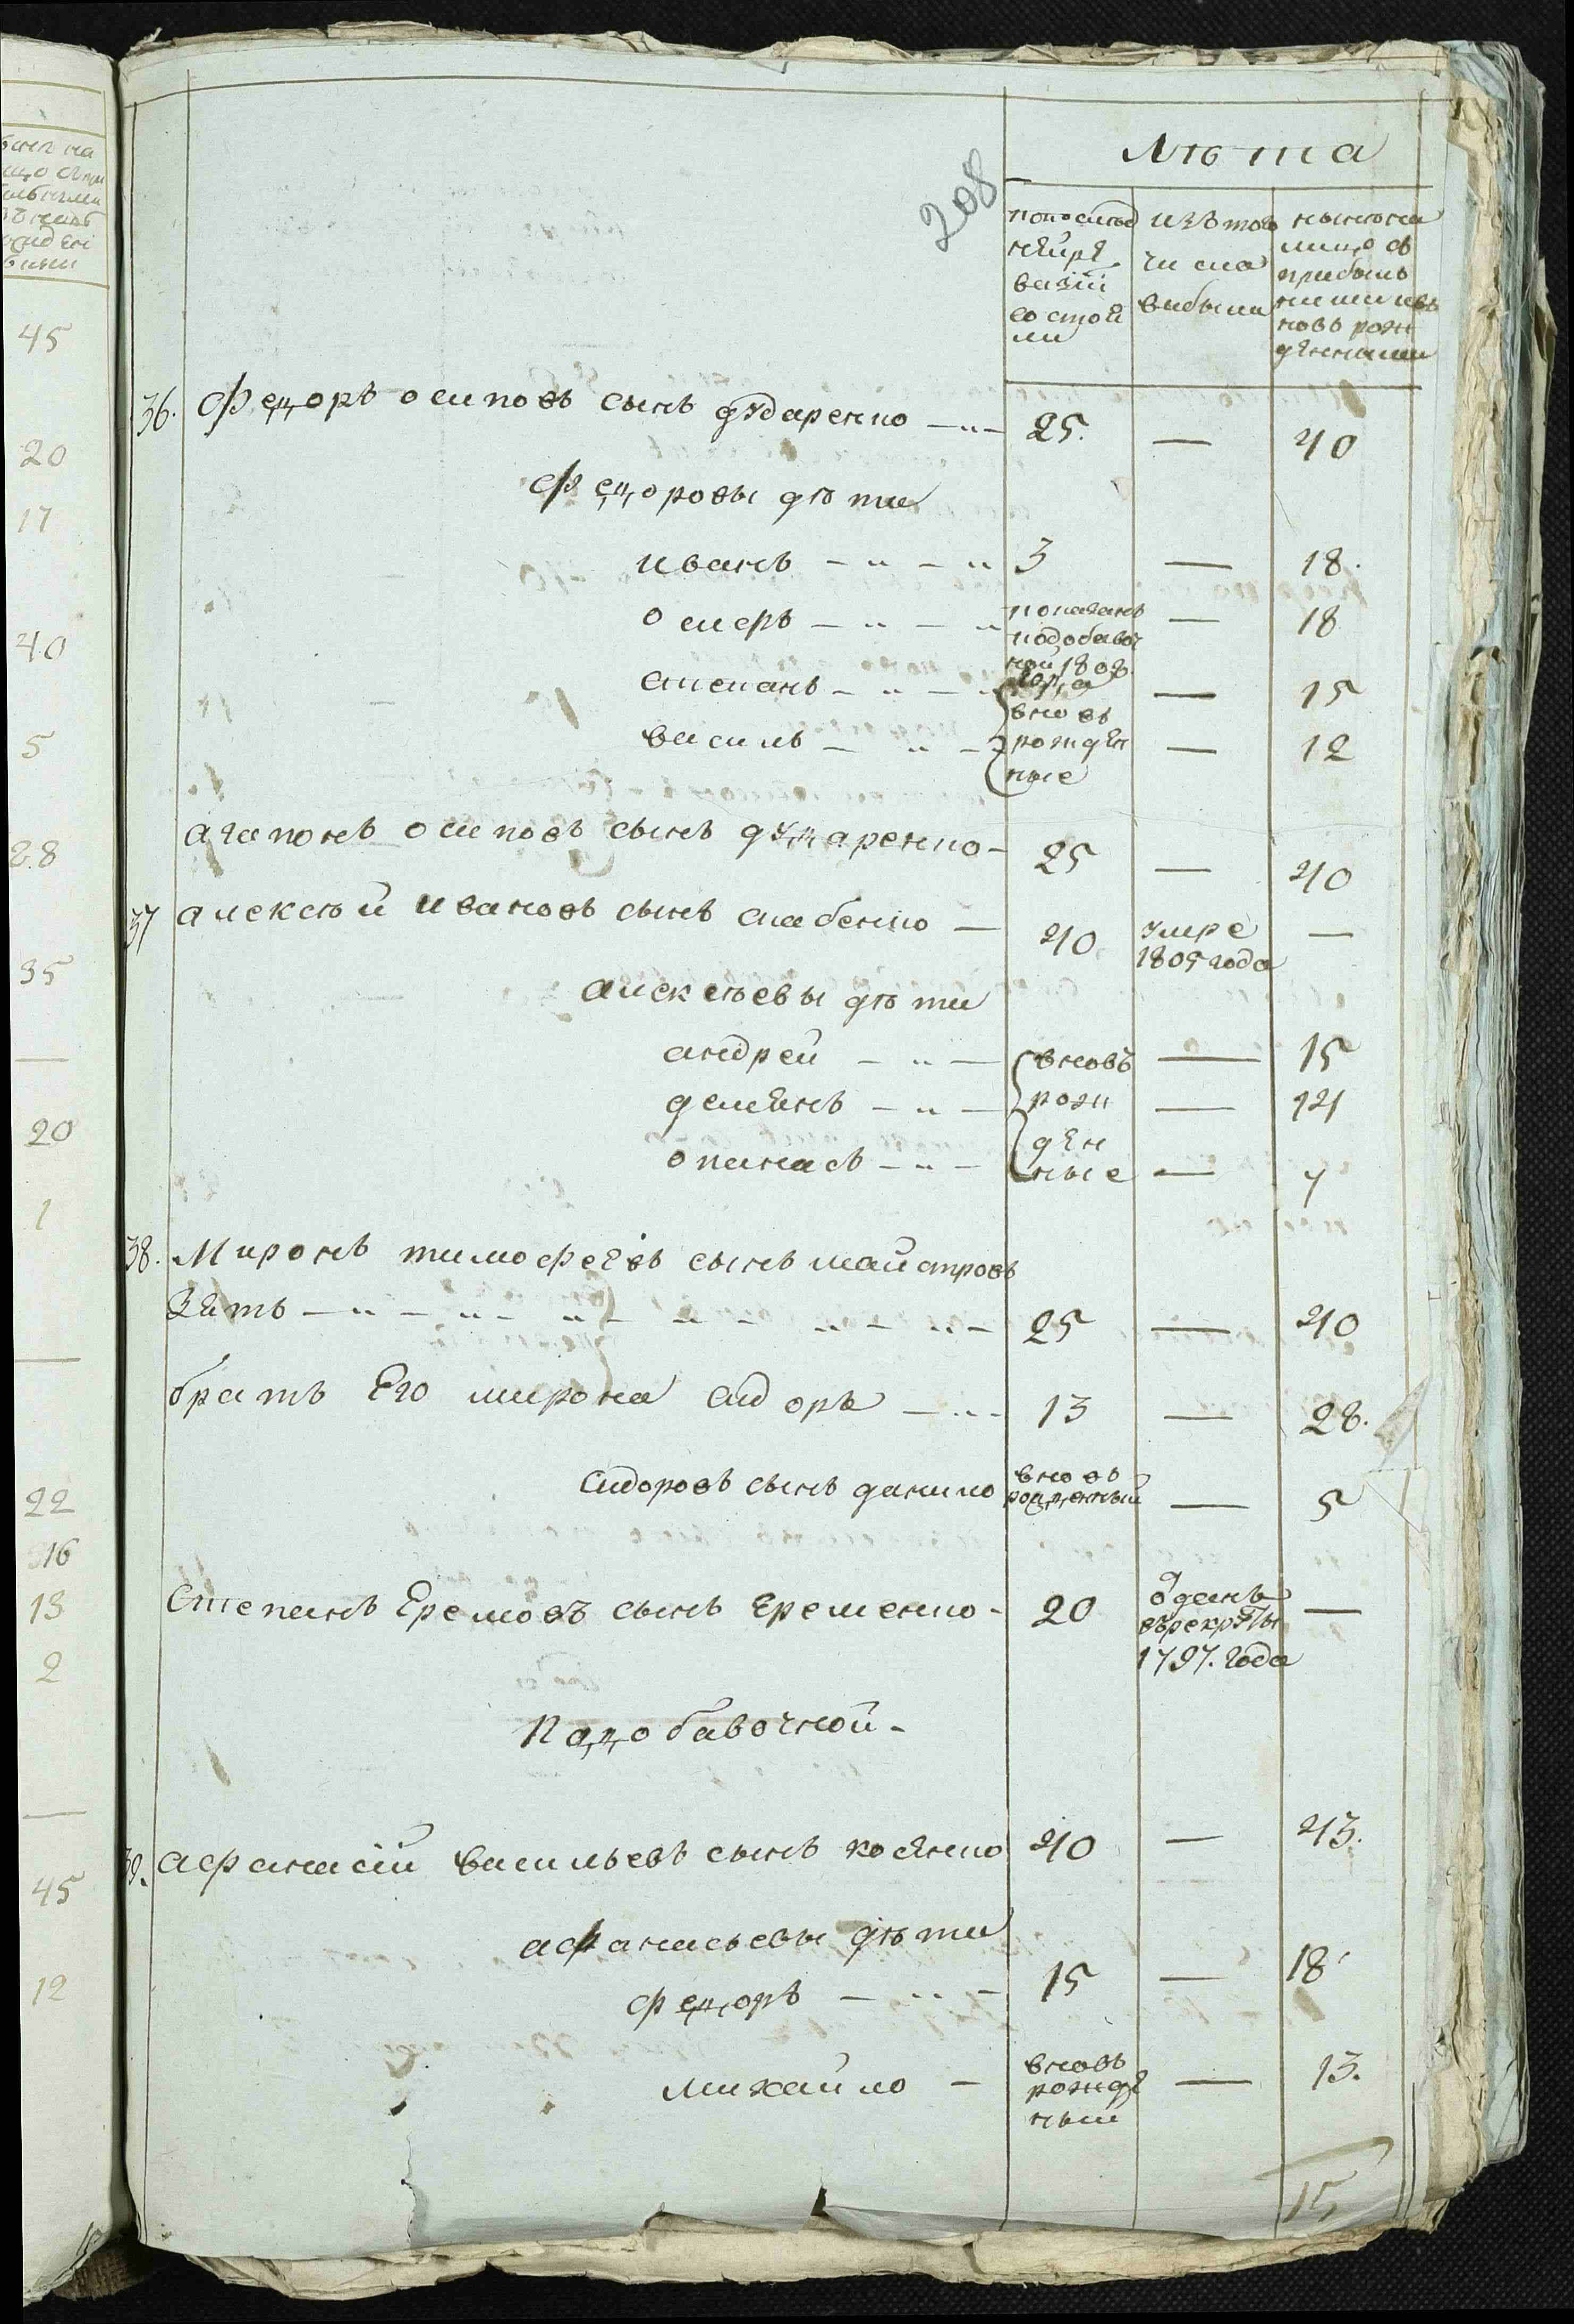 208
Лѣта
попослед
нѣйре
визіи
состой
ли
изътого
числа
выбыли
нынѣна
лицо съ
прибыль
ними ивъ
новь рож
денными
36. Федоръ осиповъ сынъ дударенко 25. — 40
Федоровы дѣти
иванъ 3 — 18.
омеръ показанъ подобавоч ной 1808 года — 18
степанъ — 15
василь { вновь рожден ные — 12
агапонъ осиповъ сынъ дударенко 25 — 40
37 алексѣй ивановъ сынъ слабенко 40 умре 1805 года —
алексѣевы дѣти
андрей { вновь — 15
демянъ рож — 14
опанасъ ден ные — 7
38. Миронъ тимофеевъ сынъ майстровъ
зять 25 — 40
братъ Его мирона сидоръ 13 — 28.
сидоровъ сынъ данило вновь рожденный — 5
Степанъ Еремовъ сынъ Еременко 20 одданъ врекруты 1797. года —
Подобавочной
39. афанасій васильевъ сынъ косенко 40 — 43.
афанасьевы дѣти
федоръ 15 — 18
михайло вновь рожде ный — 13.
15
45
20
17
40
5
28
35
—
20
1
—
22
16
13
2
—
45
12